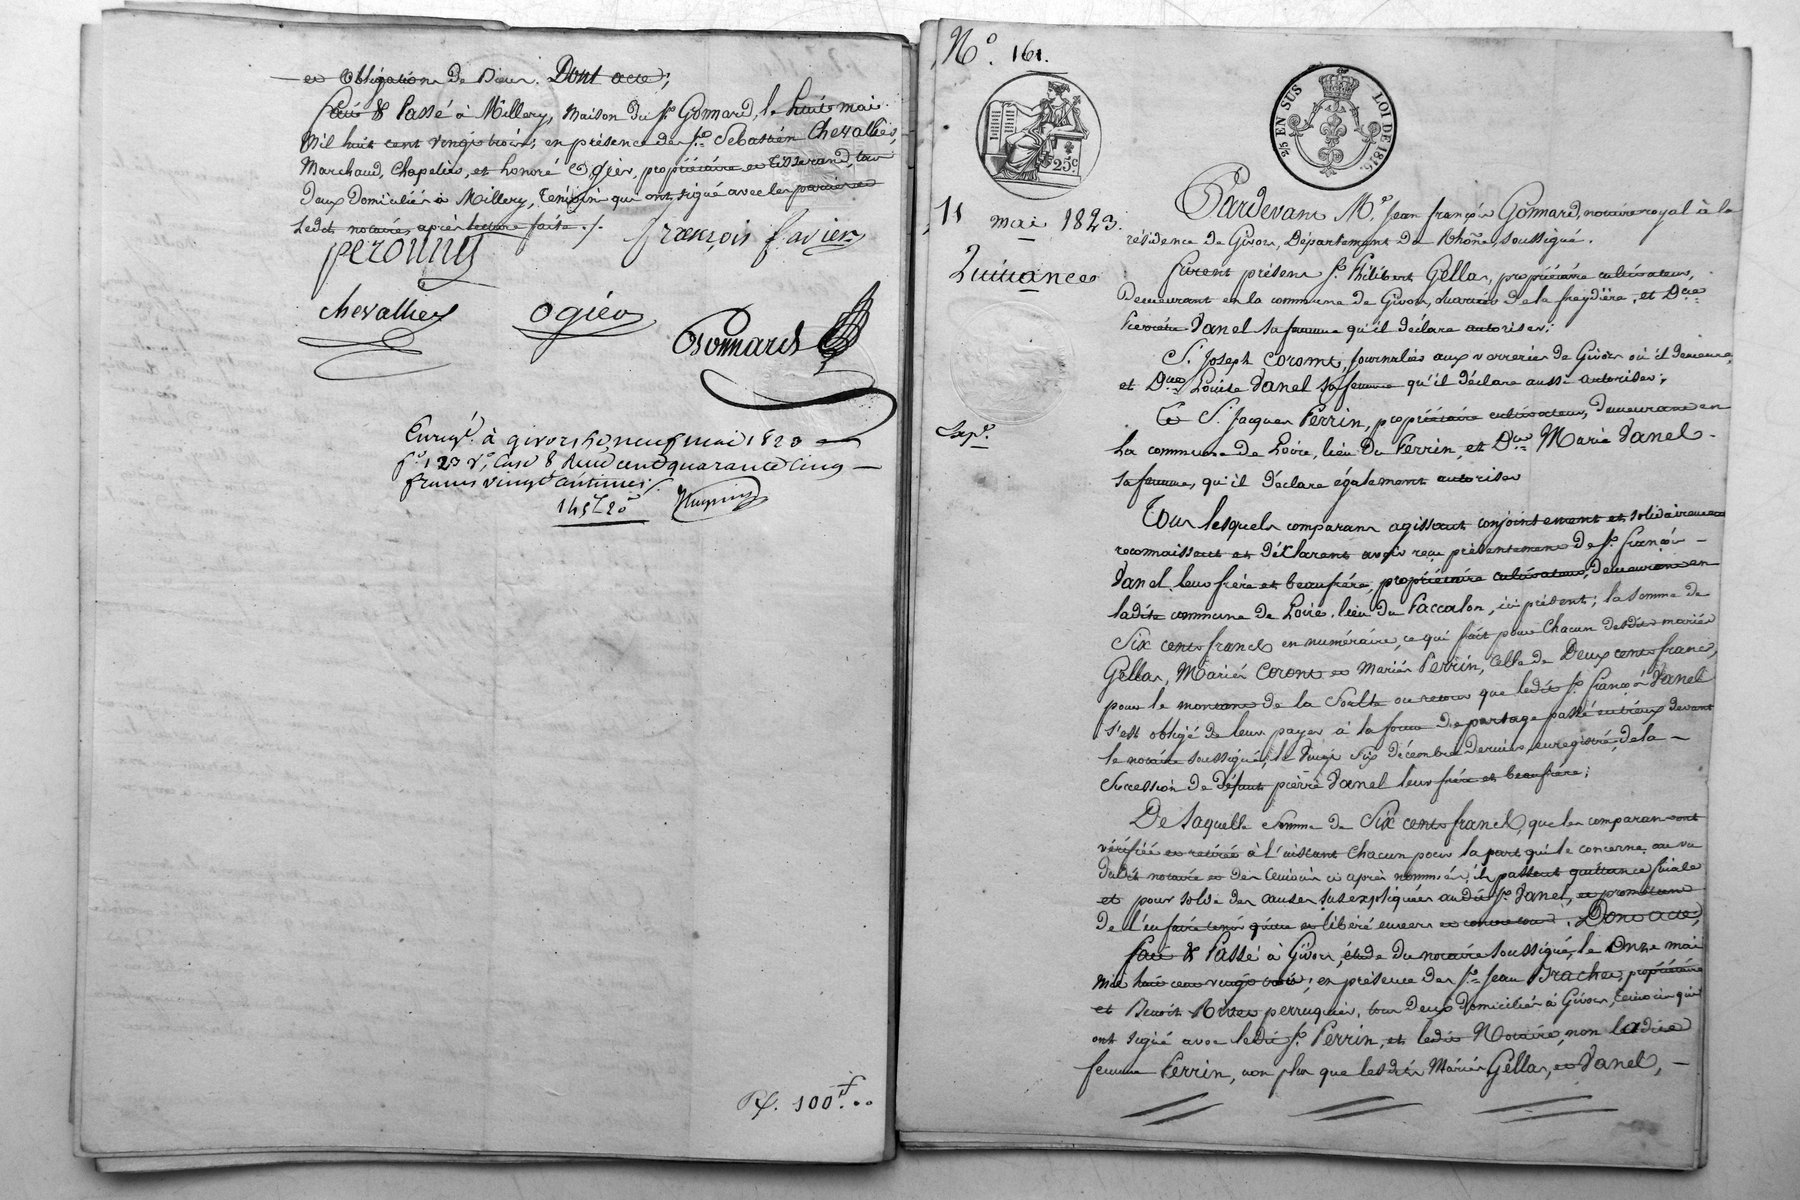 et Obligations de Dieu. Dont acte;
fait & Passé à Millery, Maison du Sr. Gonnard, le huit mai
Mil huit cent vingt trois; en présence des Srs. Sebastien Chevallier,
Marchand Chapelier, et honoré Ogier, propriétaire et tisserand, tous
deux domiciliés à Millery, témoins qui ont signé avec les parties
Ledit notaire, après lecture faite ./.
peronny françois favier
chevallier ogier
Gonnard
Enregé. à givors le neuf mai 1823
fo. 123 Vo, Case 8 Reçu cent quarante cinq
francs vingt centimes
145f 20c
Rf. 100f. 00
No. 161.
25c.
2/5 EN SUS LOI DE 1816.
11 mai 1823.
Quittance
Exp.
Pardevant Me. Jean françois Gonnard, notaire royal à la
résidence de Givors, Département du Rhône, soussigné.
furent présens Sr. Philibert Gellas, propriétaire cultivateur,
Demeurant en la commune de Givors, quartier de la freydière, et Dlle
Pierrette Vanel sa femme qu'il déclare autoriser;
Sr. Joseph Coront, journalier aux verreries de Givors où il demeure,
et Dlle Louise Vanel sa femme qu'il déclare aussi autoriser;
Et Sr. Jacques Perrin, propriétaire cultivateur, demeurant en
la commune de Loire, lieu du Perrin, et Dlle Marie Vanel
sa femme, qu'il déclare également autoriser
Tous lesquels comparans agissant conjointement et solidairement
reconnaissent et déclarent avoir reçu présentement de Sr. françois
Vanel leur frère et beaufrère, propriétaire cultivateur, demeurant en
ladite commune de Loire, lieu du Paccalon, ici présent; la somme de
Six cents francs en numéraire, ce qui fait pour chacun desdits mariés
Gellas, Mariés Coront et Mariés Perrin, celle de Deux cents francs,
pour le montant de la Soulte ou retour que ledit Sr. françois Vanel
s'est obligé de leur payer à la forme de partage passé entr'eux devant
le notaire soussigné, le vingt six décembre dernier, enregistré, de la
Succession de défunt pierre Vanel leur frère et beaufrère;
De laquelle Somme de Six cents francs, que les comparans ont
vérifiée et retirée à l'instant chacun pour la part qui le concerne, au vu
dudit notaire et des témoins ci après nommés, ils passent quittance finale
et pour solde des causes susexpliquées audit Sr. Vanel, et promettent
de l'en faire tenir quitte et libéré envers et contre tous. Dont acte,
fait & Passé à Givors, étude du notaire soussigné, le onze mai
Mil huit cent vingt trois; en présence des Srs. Jean Brachet, propriétaire
et Benoit perruquier, tous deux domiciliés à Givors, témoins qui
ont signé avec ledit Sr. Perrin, et ledit Notaire, non ladite
femme Perrin, non plus que lesdits Mariés Gellas, et Vanel,